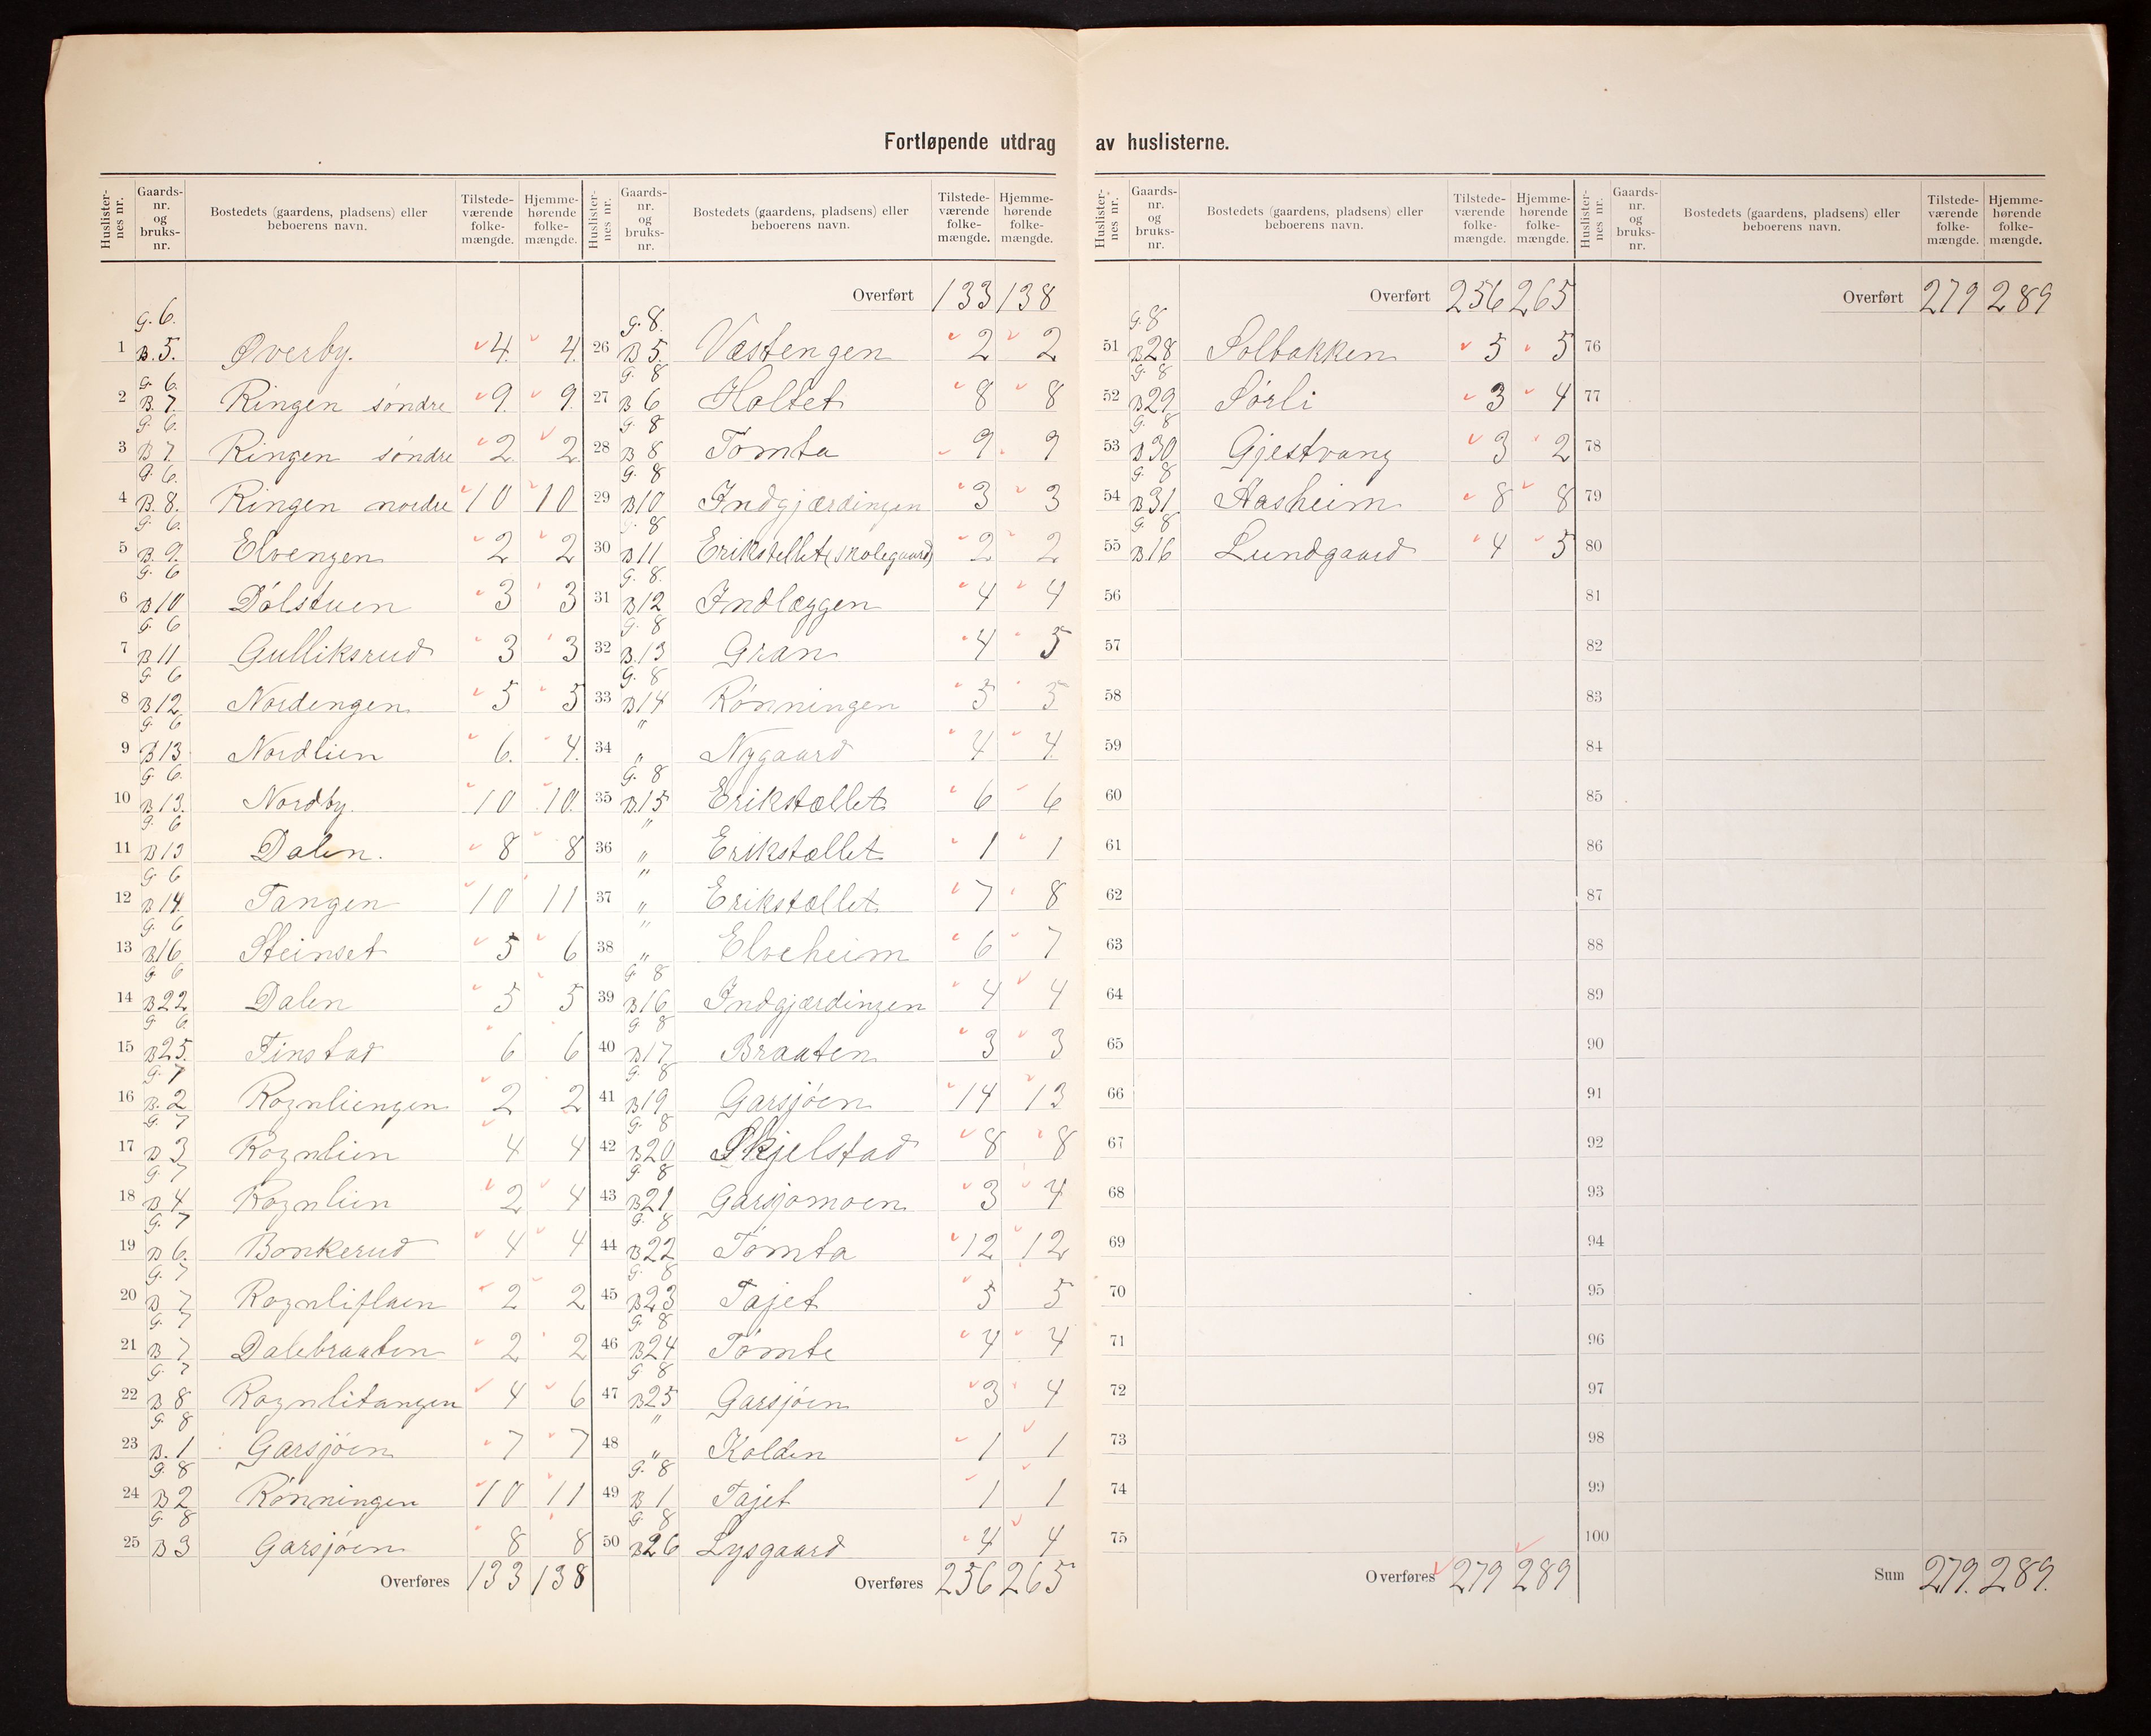 Fortløpende utdrag av huslisterne.
Huslisternes nr. Gaards-nr. og bruks-nr. Bostedets (gaardens, pladsens) eller beboerens navn. Tilstede-værende folke-mængde. Hjemme-hørende folke-mængde.
1 G. 6. B. 5. Øverby. 4. 4.
2 G. 6. B. 7. Ringen søndre 9. 9.
3 G. 6. B 7. Ringen søndre 2. 2.
4 G. 6. B. 8. Ringen nordre 10 10
5 G. 6. B. 9. Elvengen 2 2
6 G. 6 B 10 Dølstuen 3 3
7 G. 6 B 11 Gulliksrud 3 3
8 G 6 B 12 Nordengen 5 5
9 G 6 B 13 Nordlien 6. 4.
10 G. 6. B 13. Nordby. 10 10.
11 G. 6 B 13 Dalen. 8 8
12 G 6 B 14. Tangen 10 11
13 G. 6 B 16 Steinset 5 6
14 G 6 B 22 Dalen 5 5
15 G 6. B 25. Finstad 6 6
16 G. 7 B. 2 Rognliengen 2 2
17 G. 7 B 3 Rognlien 4 4
18 G 7 B 4 Rognlien 2 4
19 G. 7 B 6. Bonkerud 4 4
20 G. 7 B 7 Rognliflaen 2 2
21 G. 7 B 7 Dalebraaten 2 2
22 G. 7 B 8 Rognlitangen 4 6
23 G. 8 B. 1 Garsjøen 7 7
24 G. 8 B 2 Rønningen 10 11
25 G. 8 B 3 Garsjøen 8 8
Overføres 133 138
Huslisternes nr. Gaards-nr. og bruks-nr. Bostedets (gaardens, pladsens) eller beboerens navn. Tilstede-værende folke-mængde. Hjemme-hørende folke-mængde.
Overført 133 138
26 G. 8. B 5. Vestengen 2 2
27 G. 8 B 6 Holtet 8 8
28 G. 8 B 8 Tømta 9 9
29 G. 8 B 10 Indgjærdingen 3 3
30 G. 8 B 11 Erikstellet (skolegaard) 2 2
31 G. 8. B 12 Indlæggen 4 4
32 G. 8 B. 13 Gran 4 5
33 G. 8 B 14 Rønningen 5 5
34 " " Nygaard 4 4.
35 G. 8 B. 15 Erikstællet 6 6
36 " " Erikstællet 1 1
37 " " Erikstællet 7 8
38 " " Elveheim 6 7
39 G 8 B 16 Indgjærdingen 4 4
40 G 8 B 17 Braaten 3 3
41 G. 8 B 19 Garsjøen 14 13
42 G. 8 B 20 Skjelstad 8 8
43 G. 8 B 21 Garsjømoen 3 4
44 G. 8 B 22 Tømta 12 12
45 G. 8 B 23 Tajet 5 5
46 G. 8 B 24 Tømte 4 4
47 G 8 B 25 Garsjøen 3 4
48 " " Kolden 1 1
49 G. 8 B 1 Tajet 1 1
50 G. 8 B 26 Lysgaard 4 4
Overføres 256 265
Huslisternes nr. Gaards-nr. og bruks-nr. Bostedets (gaardens, pladsens) eller beboerens navn. Tilstede-værende folke-mængde. Hjemme-hørende folke-mængde.
Overført 256 265
51 G. 8 B 28 Solbakken 5 5
52 G. 8 B 29 Sørli 3 4
53 G. 8 B 30 Gjestvang 3 2
54 G. 8 B 31 Aasheim 8 8
55 G. 8 B. 16 Lundgaard 4 5
56
57
58
59
60
61
62
63
64
65
66
67
68
69
70
71
72
73
74
75
Overføres 279 289
Huslisternes nr. Gaards-nr. og bruks-nr. Bostedets (gaardens, pladsens) eller beboerens navn. Tilstede-værende folke-mængde. Hjemme-hørende folke-mængde.
Overført 279 289
76
77
78
79
80
81
82
83
84
85
86
87
88
89
90
91
92
93
94
95
96
97
98
99
100
Sum 279. 289.